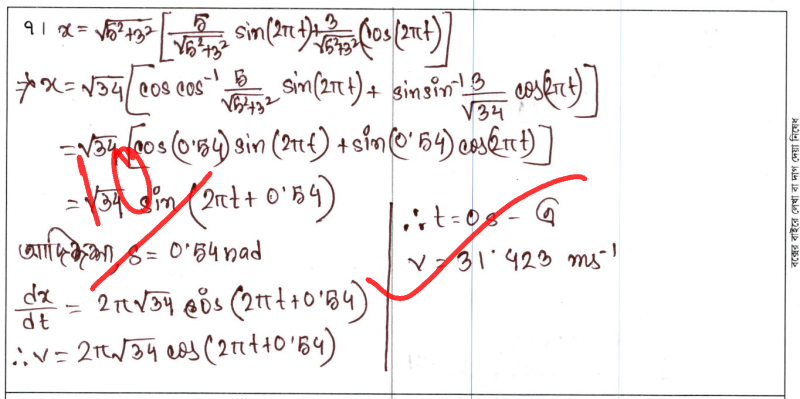 91 x = √5²+3² [ 5/√5²+3² sin(2πt) + 3/√5²+3² cos(2πt) ]
⇒ x = √34 [ cos cos⁻¹ 5/√5²+3² sin(2πt) + sin sin⁻¹ 3/√34 cos(2πt) ]
= √34 [cos (0.54) sin (2πt) + sin (0.54) cos(2πt) ]
10
= √34 sin (2πt + 0.54)
δ = 0.54 rad
dx/dt = 2π√34 cos (2πt+0.54)
∴ v = 2π√34 cos (2πt+0.54)
∴ t = 0 s - এ
v = 31.423 ms⁻¹
বক্সের বাইরে লেখা বা দাগ দেয়া নিষেধ